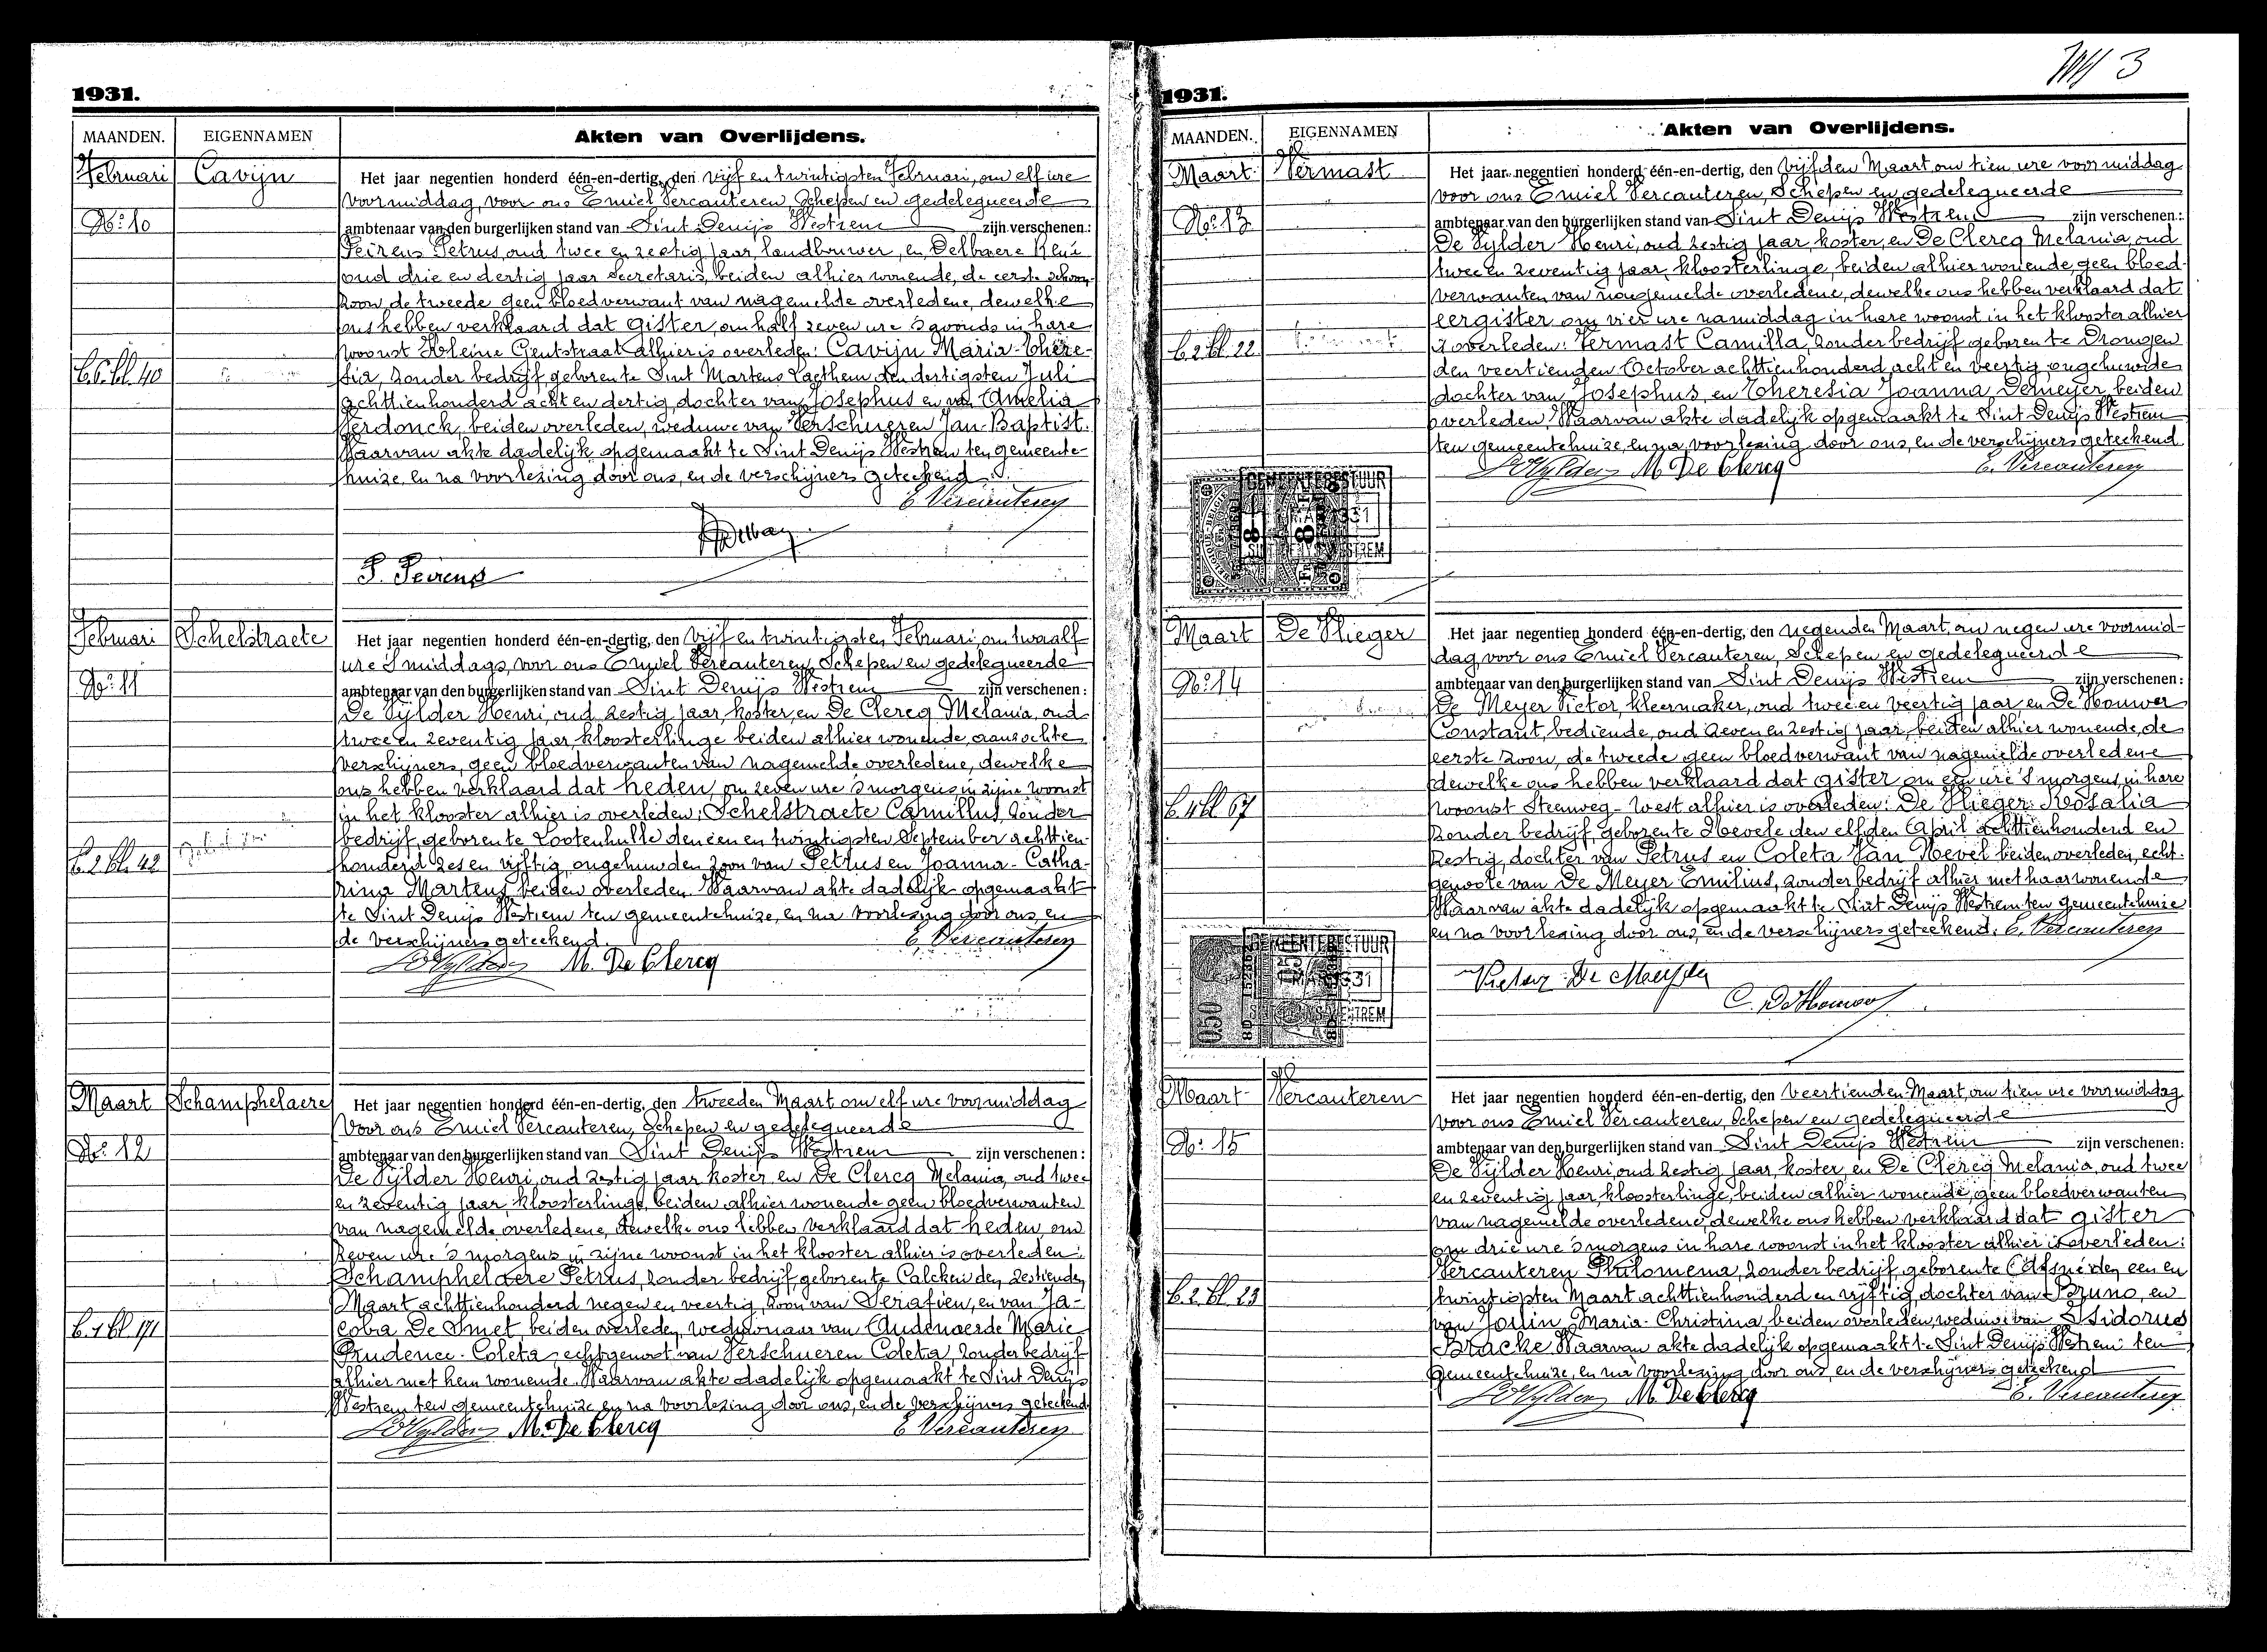 1931.
MAANDEN.
EIGENNAMEN
Akten van Overlijdens.
Februari
Cavijn
No: 10
B.6. bl. 40
Het jaar negentien honderd één-en-dertig, den vijf en twintigsten Februari, om elf ure
voormiddag, voor ons Emiel Vercauteren, Schepen en gedelegueerde
ambtenaar van den burgerlijken stand van Sint Denijs Westrem zijn verschenen:
Peirens Petrus, oud twee en zestig jaar, landbouwer, en Delbaere René
oud drie en dertig jaar secretaris, beiden alhier wonende, de eerste schoon-
zoon, de tweede geen bloedverwant van nagemelde overledene, dewelke
ons hebben verklaard dat gister, om half zeven ure 's avonds in hare
woonst Kleine Gentstraat alhier is overleden: Cavijn Maria-There-
sia, zonder bedrijf, geboren te Sint Martens Laethem den dertigsten Juli
achttienhonderd acht en dertig, dochter van Josephus en van Amelia
Verdonck, beiden overleden, weduwe van Verschueren Jan-Baptist.
Waarvan akte dadelijk opgemaakt te Sint Denijs Westrem ten gemeente-
huize, en na voorlezing door ons, en de verschijners geteekend.
E. Vercauteren
P. Peirens
Februari
Schelstraete
No: 11
B. 2. bl. 42
Het jaar negentien honderd één-en-dertig, den vijf en twintigsten Februari, om twaalf
ure 's middags, voor ons Emiel Vercauteren, Schepen en gedelegueerde
ambtenaar van den burgerlijken stand van Sint Denijs Westrem zijn verschenen:
De Vylder Henri, oud zestig jaar, koster, en De Clercq Melania, oud
twee en zeventig jaar, kloosterlinge beiden alhier wonende, aanzochte
verschijners, geen bloedverwanten van nagemelde overledene, dewelke
ons hebben verklaard dat heden, om zeven ure 's morgens in zijne woonst
in het klooster alhier is overleden: Schelstraete Camillus, zonder
bedrijf, geboren te Lootenhulle den een en twintigsten September achttien-
honderd zes en vijftig, ongehuwden zoon van Petrus en Joanna-Catha-
rina Martens, beiden overleden. Waarvan akte dadelijk opgemaakt
te Sint Denijs Westrem ten gemeentehuize, en na voorlezing door ons, en
de verschijners geteekend.
E. Vercauteren
M. De Clercq
Maart
Schamphelaere
No: 12
B. 1 bl 171
Het jaar negentien honderd één-en-dertig, den tweeden Maart om elf ure voormiddag
voor ons Emiel Vercauteren, Schepen en gedelegueerde
ambtenaar van den burgerlijken stand van Sint Denijs Westrem zijn verschenen:
De Vylder Henri, oud zestig jaar koster, en De Clercq Melania, oud twee
en zeventig jaar, kloosterlinge, beiden alhier wonende geen bloedverwanten
van nagemelde overledene, dewelke ons hebben verklaard dat heden, om
zeven ure 's morgens in zijne woonst in het klooster alhier is overleden:
Schamphelaere Petrus, zonder bedrijf, geboren te Calcken den zestienden
Maart achttienhonderd negen en veertig, zoon van Serafien, en van Ja-
coba De Smet, beiden overleden, weduwnaar van Audenaerde Marie
Prudence-Coleta, echtgenoot van Verschueren Coleta, zonder bedrijf
alhier met hem wonende. Waarvan akte dadelijk opgemaakt te Sint Denijs
Westrem ten gemeentehuize en na voorlezing door ons, en de verschijners geteekend.
M. De Clercq
E. Vercauteren
3
1931.
MAANDEN.
EIGENNAMEN
Akten van Overlijdens.
Maart
Vermast
No: 13
B. 2 bl. 22
Het jaar negentien honderd één-en-dertig, den vijfden Maart om tien ure voormiddag
voor ons Emiel Vercauteren, Schepen en gedelegueerde
ambtenaar van den burgerlijken stand van Sint Denijs Westrem zijn verschenen:
De Vylder Henri, oud zestig jaar koster, en De Clercq Melania, oud
twee en zeventig jaar, kloosterlinge, beiden alhier wonende, geen bloed-
verwanten van nagemelde overledene, dewelke ons hebben verklaard dat
eergister om vier ure namiddag in hare woonst in het klooster alhier
is overleden: Vermast Camilla, zonder bedrijf geboren te Drongen
den veertienden October achttienhonderd acht en veertig, ongehuwde
dochter van Josephus, en Theresia Joanna Demeyer, beiden
overleden. Waarvan akte dadelijk opgemaakt te Sint Denijs Westrem
ten gemeentehuize, en na voorlezing door ons, en de verschijners geteekend.
M. De Clercq
E. Vercauteren
GEMEENTEBESTUUR
Maart
De Vlieger
No: 14
B. 4 bl 67
Het jaar negentien honderd één-en-dertig, den negenden Maart, om negen ure voormid-
dag voor ons Emiel Vercauteren, Schepen en gedelegueerde
ambtenaar van den burgerlijken stand van Sint Denijs Westrem zijn verschenen:
De Meyer Victor, kleermaker, oud twee en veertig jaar, en De Houwer
Constant, bediende, oud zeven en zestig jaar, beiden alhier wonende, de
eerste zoon, de tweede geen bloedverwant van nagemelde overledene
dewelke ons hebben verklaard dat gister om een ure 's morgens, in hare
woonst Steenweg-West alhier is overleden: De Vlieger Rosalia
zonder bedrijf, geboren te Nevele den elfden April achttienhonderd en
zestig, dochter van Petrus en Coleta Van Nevel beiden overleden, echt-
genoote van De Meyer Emilius, zonder bedrijf alhier met haar wonende
Waarvan akte dadelijk opgemaakt te Sint Denijs Westrem ten gemeentehuize
en na voorlezing door ons, en de verschijners geteekend. E. Vercauteren
Victor De Meyer
050
Maart
Vercauteren
No: 15
B. 2 bl. 23
Het jaar negentien honderd één-en-dertig, den veertienden Maart, om tien ure voormiddag
voor ons Emiel Vercauteren, Schepen en gedelegueerde
ambtenaar van den burgerlijken stand van Sint Denijs Westrem zijn verschenen:
De Vylder Henri, oud zestig jaar, koster, en De Clercq Melania, oud twee
en zeventig jaar, kloosterlinge, beiden alhier wonende, geen bloedverwanten
van nagemelde overledene, dewelke ons hebben verklaard dat gister
om drie ure 's morgens in hare woonst in het klooster alhier is overleden:
Vercauteren Philomena, zonder bedrijf, geboren te Afsné den een en
twintigsten Maart achttienhonderd en vijftig, dochter van Bruno, en
van Maria-Christina, beiden overleden, weduwe van Isidorus
Bracke. Waarvan akte dadelijk opgemaakt te Sint Denijs Westrem ten
gemeentehuize, en na voorlezing door ons, en de verschijners geteekend
M. De Clercq
E. Vercauteren